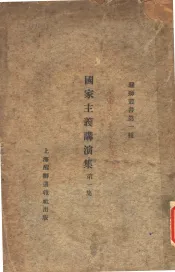 醒獅叢書第一種
國家主義講演集 第一集
上海醒獅週報社出版